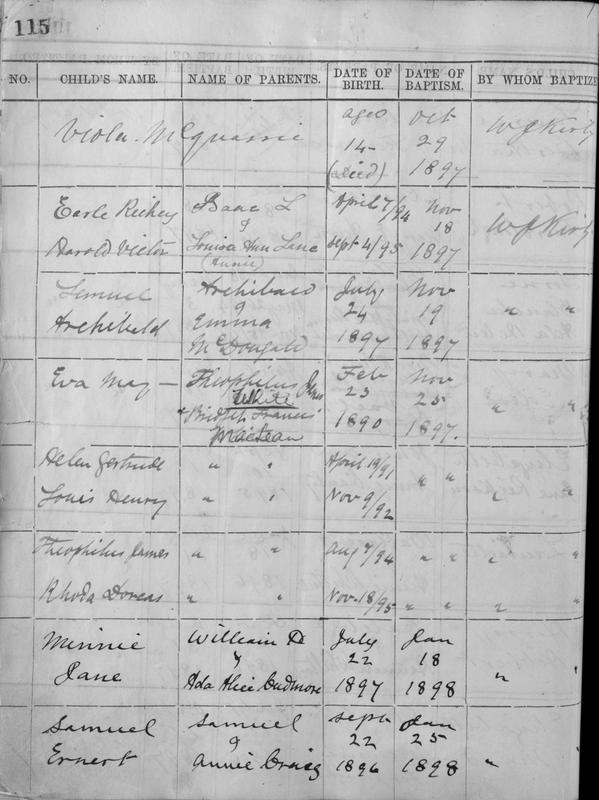 115
NO. CHILD'S NAME. NAME OF PARENTS. DATE OF BIRTH. DATE OF BAPTISM. BY WHOM BAPTIZE
Viola McQuarrie aged 14 (died) Oct 29 1897 W J Kirby
Earle Richey Isaac L April 7/94 Nov 18 W J Kirby
& 
Harold Victor Louisa Ann Lane Sept 4/95 1897
(Annie)
Lemuel Archibald July Nov
& 24 19 " "
Archibald Emma 1897 1897
McDougald
Eva May — Theophilus James Feb Nov
White 23 25 " "
+ Bridget Francis 1890 1897.
MacLean
Helen Gertrude " " April 19/91 " "
Louis Henry " " Nov 9/92
Theophilus James " " Aug 7/94 " " " "
Rhoda Dorcas " " Nov. 18/95 " " " "
Minnie William De July Jan
& 22 18 " "
Jane Ada Alice Cudmore 1897 1898
Samuel Samuel Sept Jan
& 22 25
Ernert Annie Craig 1896 1898 "